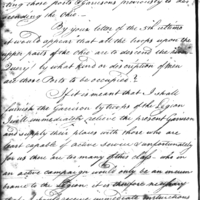 ting those posts & Garrisons previously to as-
cending the Ohio.
By your letter of the 3d Ultimo
it would appear that all the troops upon the
upper parts of the Ohio are to descend the
Query? by what kind or discription of men
are those Posts to be occupied?
If it is meant that I shall
furnish the Garrison by troops of the Legion
I shall immediately relieve the present Garrison
and supply their places with those who are
least capable of active service & unfortunately
for us there are too many of this class, who in
an active campaign would only be an incum
brance to the Legion; it is therefore necessary
that I receive immediate instructions